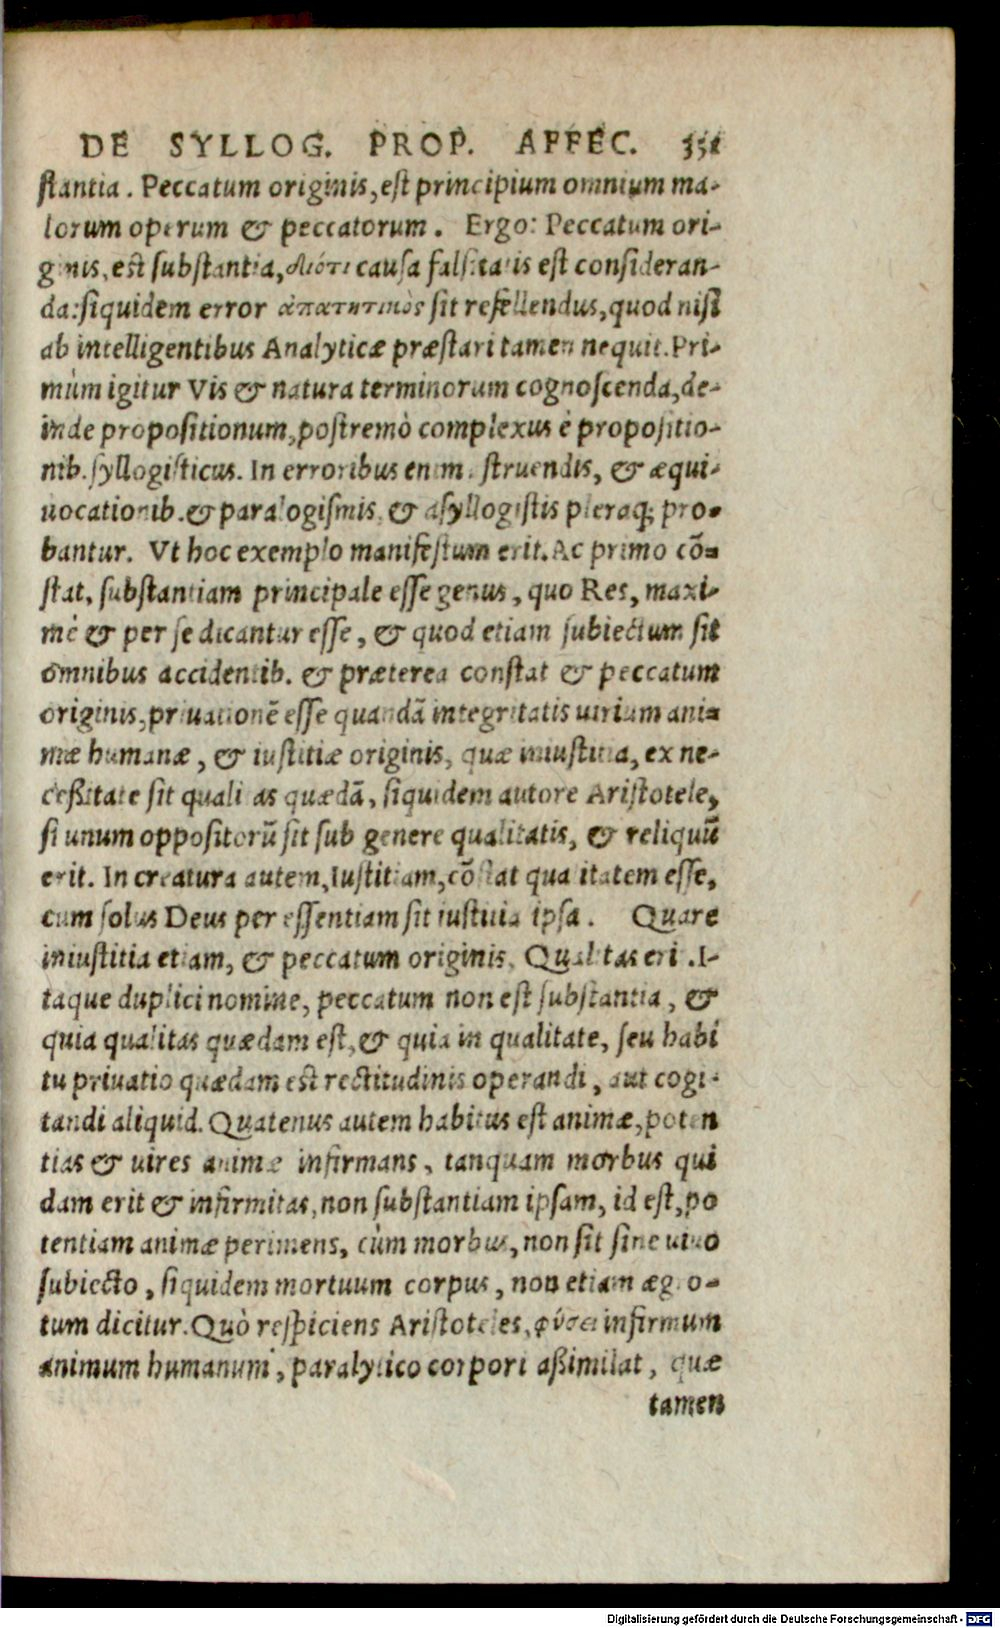 DE SYLLOG. PROP. AFFEC. 351
stantia. Peccatum originis, est principium omnium ma-
lorum operum & peccatorum. Ergo: Peccatum ori-
ginis, est substantia, διότι causa falsitatis est consideran-
da: siquidem error ἀπατητικὸς sit refellendus, quod nisi
ab intelligentibus Analyticæ præstari tamen nequit. Pri-
mùm igitur Vis & natura terminorum cognoscenda, de-
inde propositionum, postremò complexus è propositio-
nib. syllogisticus. In erroribus enim struendis, & æqui-
uocationib. & paralogismis, & asyllogistis pleraq; pro-
bantur. Vt hoc exemplo manifestum erit. Ac primo cō-
stat, substantiam principale esse genus, quo Res, maxi-
mè & per se dicantur esse, & quod etiam subiectum sit
omnibus accidentib. & præterea constat & peccatum
originis, priuationē esse quandā integritatis uirium ani-
mæ humanæ, & iustitiæ originis, quæ iniustitia, ex ne-
ceßitate sit qualitas quædā, siquidem autore Aristotele,
si unum oppositorū sit sub genere qualitatis, & reliquū
erit. In creatura autem, Iustitiam, cōstat qualitatem esse,
cum solus Deus per essentiam sit iustitia ipsa. Quare
iniustitia etiam, & peccatum originis, Qualitas erit. I-
taque duplici nomine, peccatum non est substantia, &
quia qualitas quædam est, & quia in qualitate, seu habi
tu priuatio quædam est rectitudinis operandi, aut cogi-
tandi aliquid. Quatenus autem habitus est animæ, poten
tias & uires animæ infirmans, tanquam morbus qui
dam erit & infirmitas, non substantiam ipsam, id est, po
tentiam animæ perimens, cùm morbus, non sit sine uiuo
subiecto, siquidem mortuum corpus, non etiam ægro-
tum dicitur. Quò respiciens Aristoteles, φύσει infirmum
animum humanum, paralytico corpori aßimilat, quæ
tamen
Digitalisierung gefördert durch die Deutsche Forschungsgemeinschaft - DFG